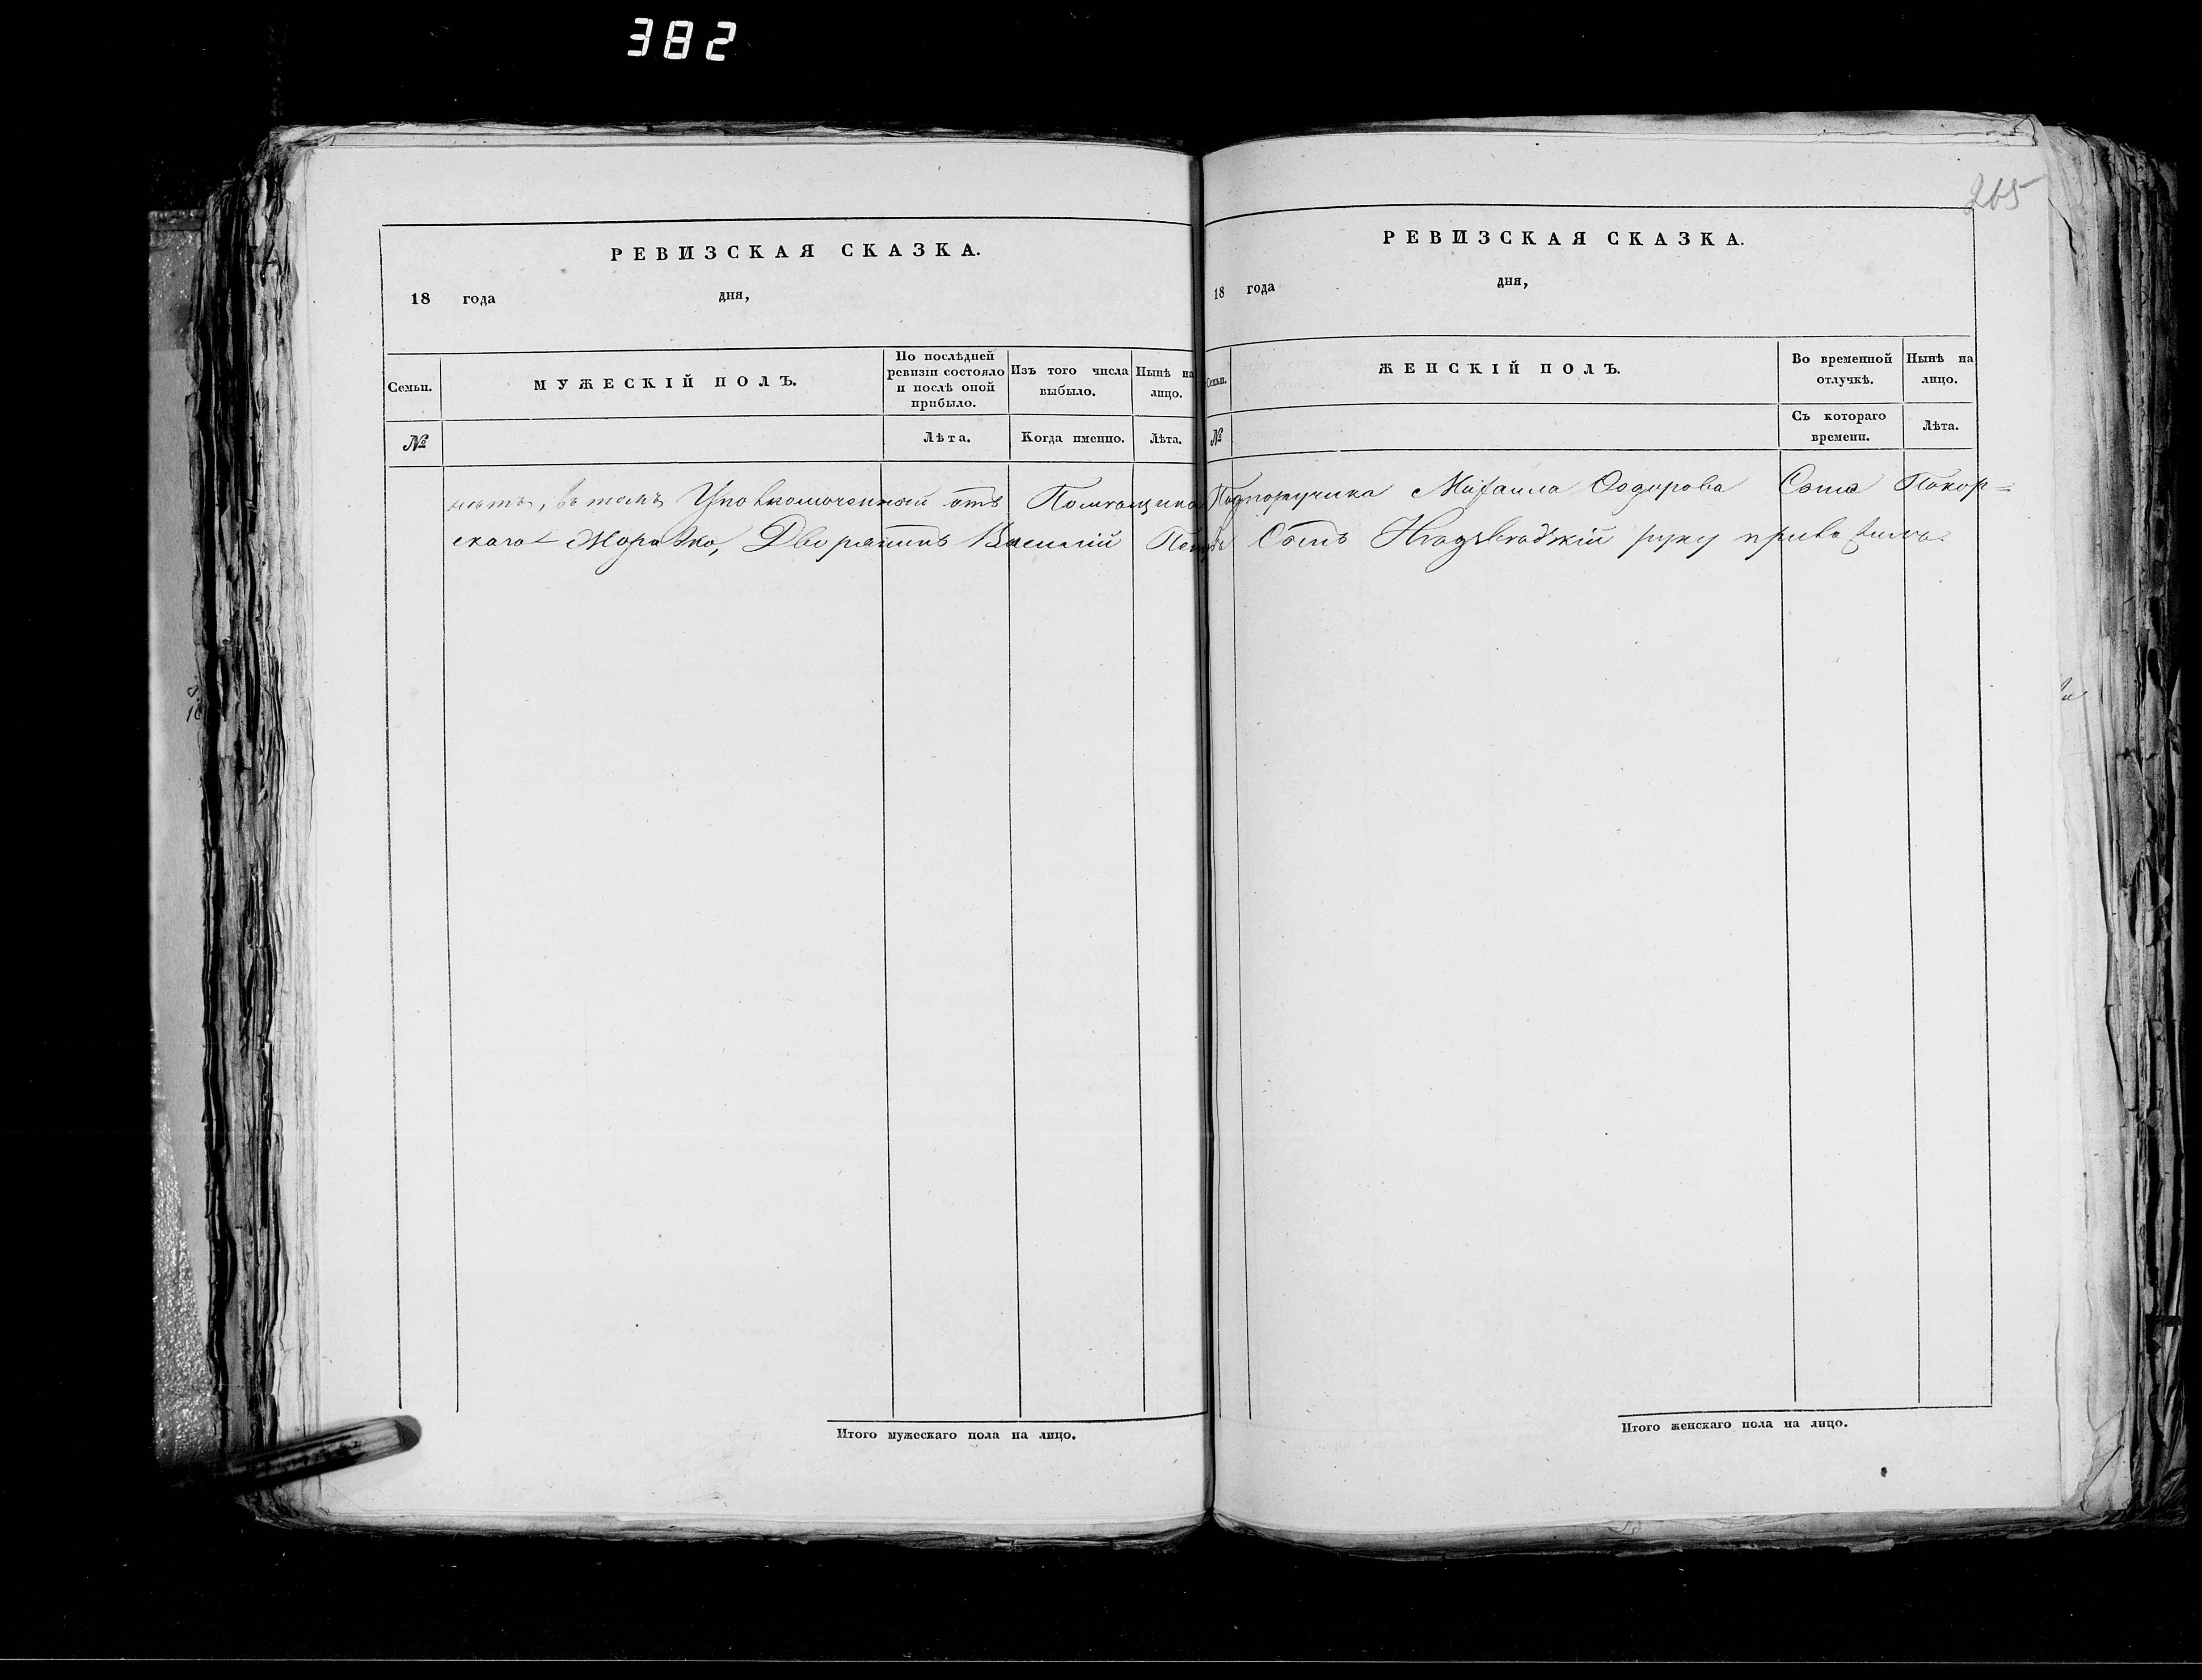 382
265
РЕВИЗСКАЯ СКАЗКА.
18 года дня,
Семьи. МУЖЕСКІЙ ПОЛЪ. По послѣдней ревизіи состояло и послѣ оной прибыло. Изъ того числа выбыло. Нынѣ на лицо.
№ Лѣта. Когда именно. Лѣта.
РЕВИЗСКАЯ СКАЗКА.
18 года дня,
Семьи. ЖЕНСКІЙ ПОЛЪ. Во временной отлучкѣ. Нынѣ на лицо.
№ Съ котораго времени. Лѣта.
въ томъ Уполномоченный отъ Помѣщика Подпоручика Михаила Ѳедорова Сына Покор=
скаго Дворянинъ Василій Петровъ Сынъ руку приложилъ.
Итого мужескаго пола на лицо.
Итого женскаго пола на лицо.